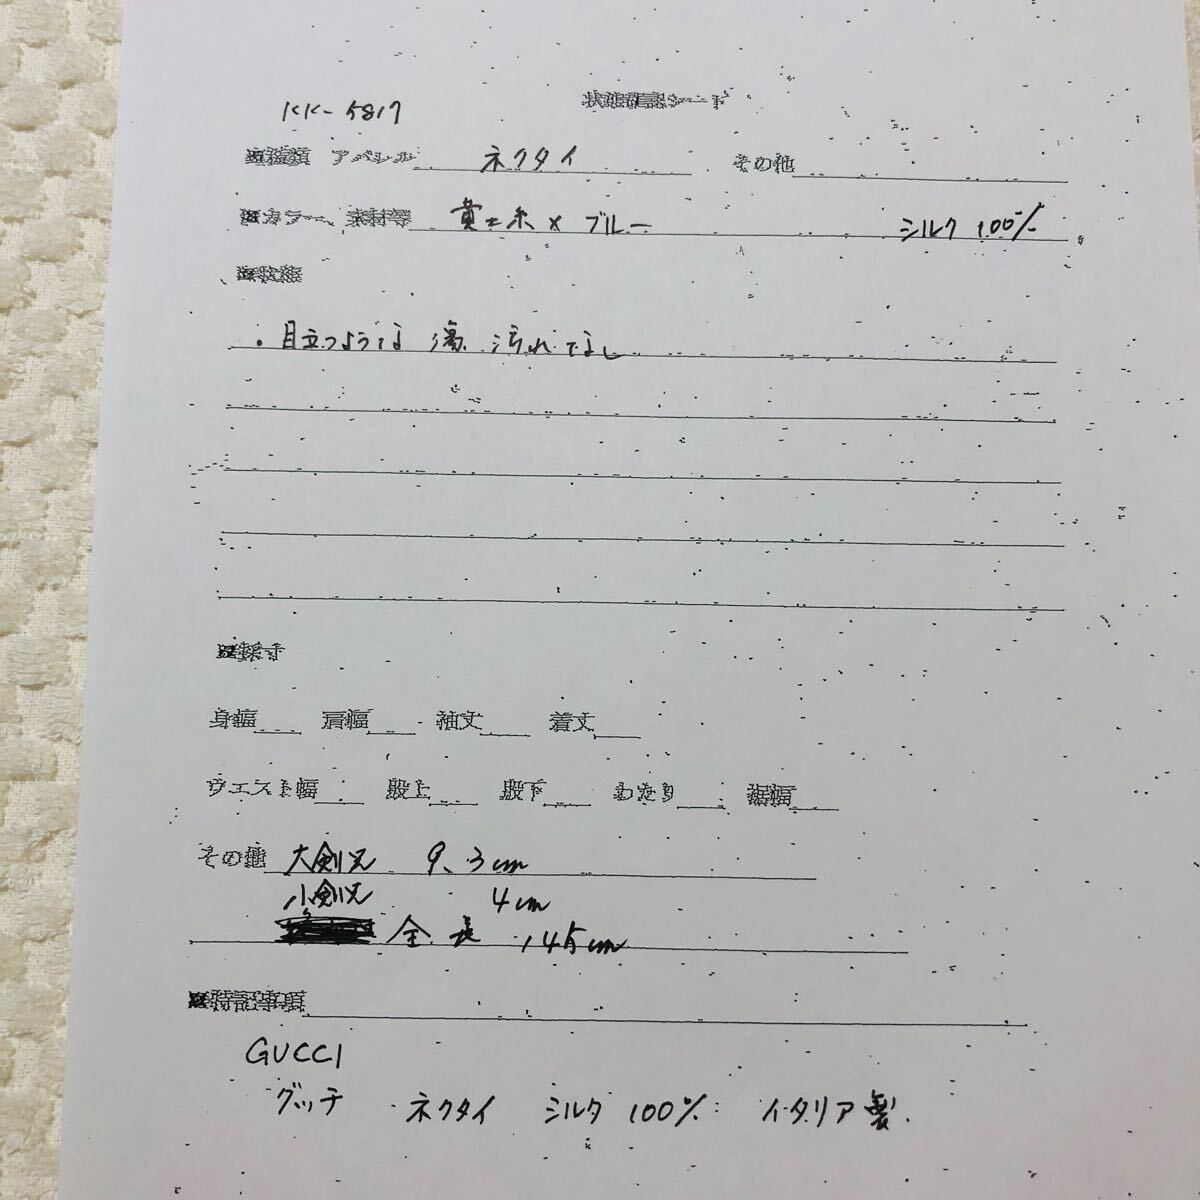 状態確認シート
KK-5817
※種類 アパレル ネクタイ その他
※カラー、素材等 黄土系×ブルー シルク100%
※状態
・目立つような傷、汚れなし
※採寸
身幅 肩幅 袖丈 着丈
ウエスト幅 股上 股下 わたり 裾幅
その他 大剣 9.3cm
小剣 4cm
全長 145cm
※特記事項
GUCCI
グッチ ネクタイ シルク100% イタリア製